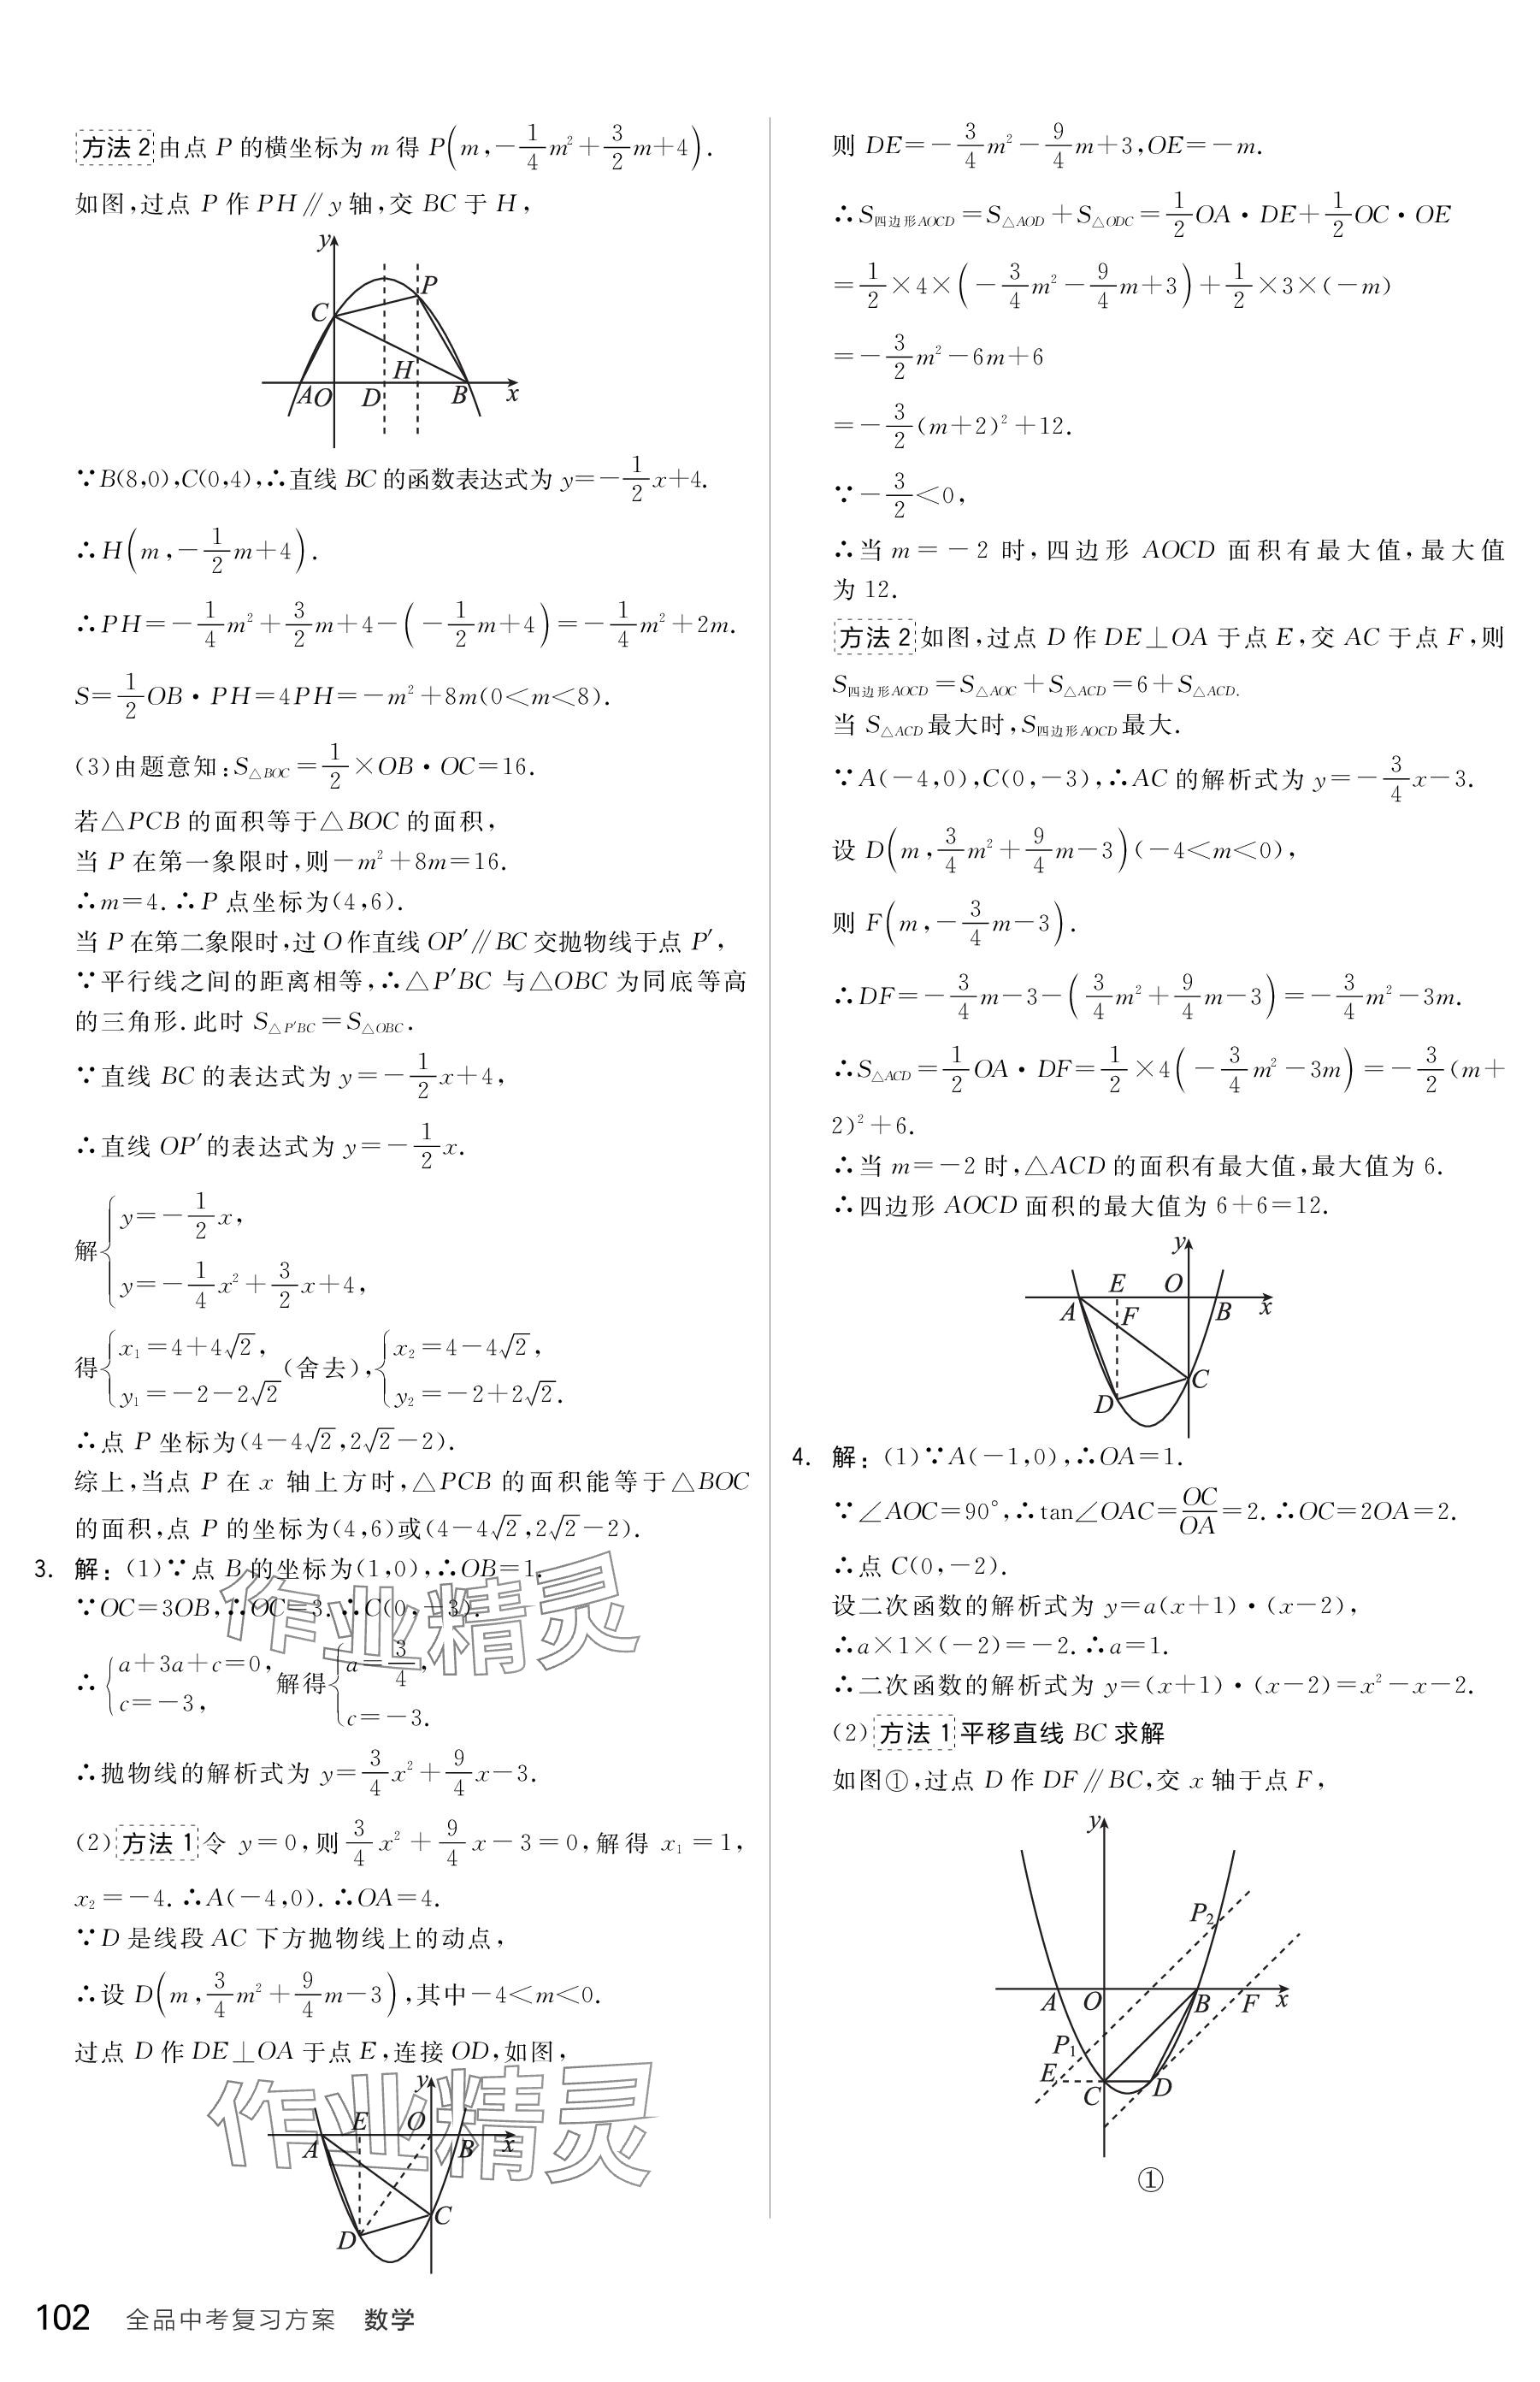 方法 2 由点 P 的横坐标为 m 得 P(m,-1/4m²+3/2m+4).
如图,过点 P 作 PH∥y 轴,交 BC 于 H,
y
P
C
H
A O D B x
∵B(8,0),C(0,4),∴直线 BC 的函数表达式为 y=-1/2x+4.
∴H(m,-1/2m+4).
∴PH=-1/4m²+3/2m+4-(-1/2m+4)=-1/4m²+2m.
S=1/2OB·PH=4PH=-m²+8m(0<m<8).
(3)由题意知:S△BOC=1/2×OB·OC=16.
若△PCB 的面积等于△BOC 的面积,
当 P 在第一象限时,则-m²+8m=16.
∴m=4.∴P 点坐标为(4,6).
当 P 在第二象限时,过 O 作直线 OP′∥BC 交抛物线于点 P′,
∵平行线之间的距离相等,∴△P′BC 与△OBC 为同底等高
的三角形.此时 S△P′BC=S△OBC.
∵直线 BC 的表达式为 y=-1/2x+4,
∴直线 OP′的表达式为 y=-1/2x.
解{y=-1/2x,
y=-1/4x²+3/2x+4,
得{x₁=4+4√2, y₁=-2-2√2 (舍去),{x₂=4-4√2, y₂=-2+2√2.
∴点 P 坐标为(4-4√2,2√2-2).
综上,当点 P 在 x 轴上方时,△PCB 的面积能等于△BOC
的面积,点 P 的坐标为(4,6)或(4-4√2,2√2-2).
3. 解:(1)∵点 B 的坐标为(1,0),∴OB=1.
∵OC=3OB,∴OC=3.∴C(0,-3).
∴{a+3a+c=0, c=-3, 解得{a=3/4, c=-3.
∴抛物线的解析式为 y=3/4x²+9/4x-3.
(2)方法 1 令 y=0,则3/4x²+9/4x-3=0,解得 x₁=1,
x₂=-4.∴A(-4,0).∴OA=4.
∵D 是线段 AC 下方抛物线上的动点,
∴设 D(m,3/4m²+9/4m-3),其中-4<m<0.
过点 D 作 DE⊥OA 于点 E,连接 OD,如图,
y
E O
A B x
C
D
作业精灵
作业精灵
102 全品中考复习方案 数学
则 DE=-3/4m²-9/4m+3,OE=-m.
∴S四边形AOCD=S△AOD+S△ODC=1/2OA·DE+1/2OC·OE
=1/2×4×(-3/4m²-9/4m+3)+1/2×3×(-m)
=-3/2m²-6m+6
=-3/2(m+2)²+12.
∵-3/2<0,
∴当 m=-2 时,四边形 AOCD 面积有最大值,最大值
为 12.
方法 2 如图,过点 D 作 DE⊥OA 于点 E,交 AC 于点 F,则
S四边形AOCD=S△AOC+S△ACD=6+S△ACD.
当 S△ACD最大时,S四边形AOCD最大.
∵A(-4,0),C(0,-3),∴AC 的解析式为 y=-3/4x-3.
设 D(m,3/4m²+9/4m-3)(-4<m<0),
则 F(m,-3/4m-3).
∴DF=-3/4m-3-(3/4m²+9/4m-3)=-3/4m²-3m.
∴S△ACD=1/2OA·DF=1/2×4(-3/4m²-3m)=-3/2(m+
2)²+6.
∴当 m=-2 时,△ACD 的面积有最大值,最大值为 6.
∴四边形 AOCD 面积的最大值为 6+6=12.
y
E O
A F B x
C
D
4. 解:(1)∵A(-1,0),∴OA=1.
∵∠AOC=90°,∴tan∠OAC=OC/OA=2.∴OC=2OA=2.
∴点 C(0,-2).
设二次函数的解析式为 y=a(x+1)·(x-2),
∴a×1×(-2)=-2.∴a=1.
∴二次函数的解析式为 y=(x+1)·(x-2)=x²-x-2.
(2)方法 1 平移直线 BC 求解
如图①,过点 D 作 DF∥BC,交 x 轴于点 F,
y
P₂
A O B F x
P₁
E
C D
①